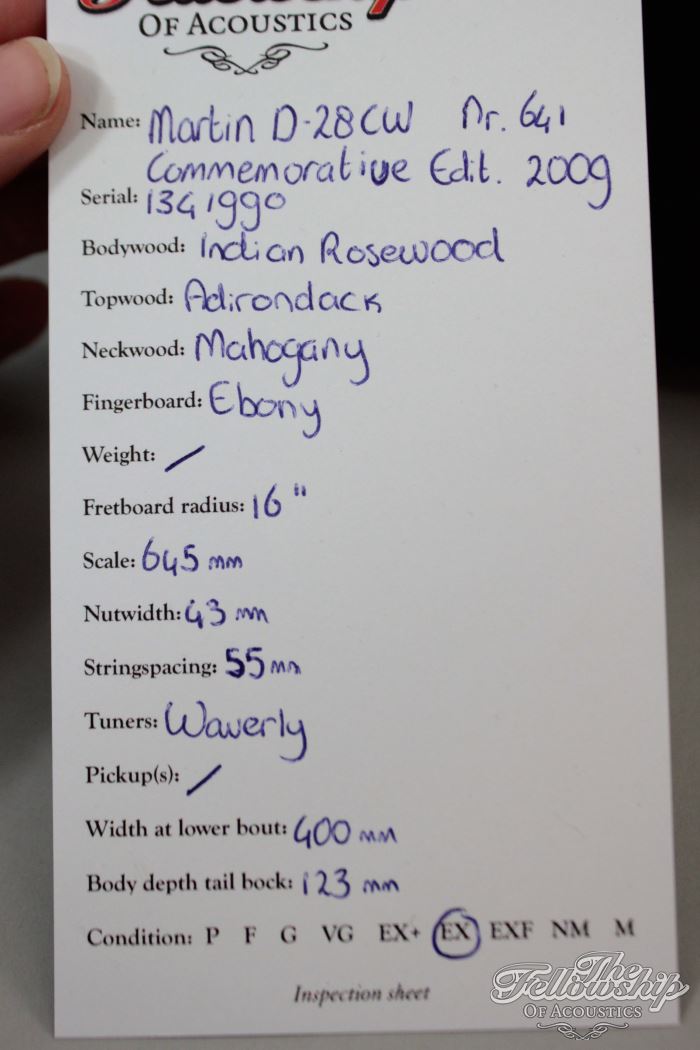 Fellowship
OF ACOUSTICS
Name: Martin D-28CW Nr. 641
Commemorative Edit. 2009
Serial: 1341990
Bodywood: Indian Rosewood
Topwood: Adirondack
Neckwood: Mahogany
Fingerboard: Ebony
Weight: /
Fretboard radius: 16"
Scale: 645 mm
Nutwidth: 43 mm
Stringspacing: 55 mm
Tuners: Waverly
Pickup(s): /
Width at lower bout: 400 mm
Body depth tail bock: 123 mm
Condition: P F G VG EX+ EX EXF NM M
Inspection sheet
The
Fellowship
OF ACOUSTICS